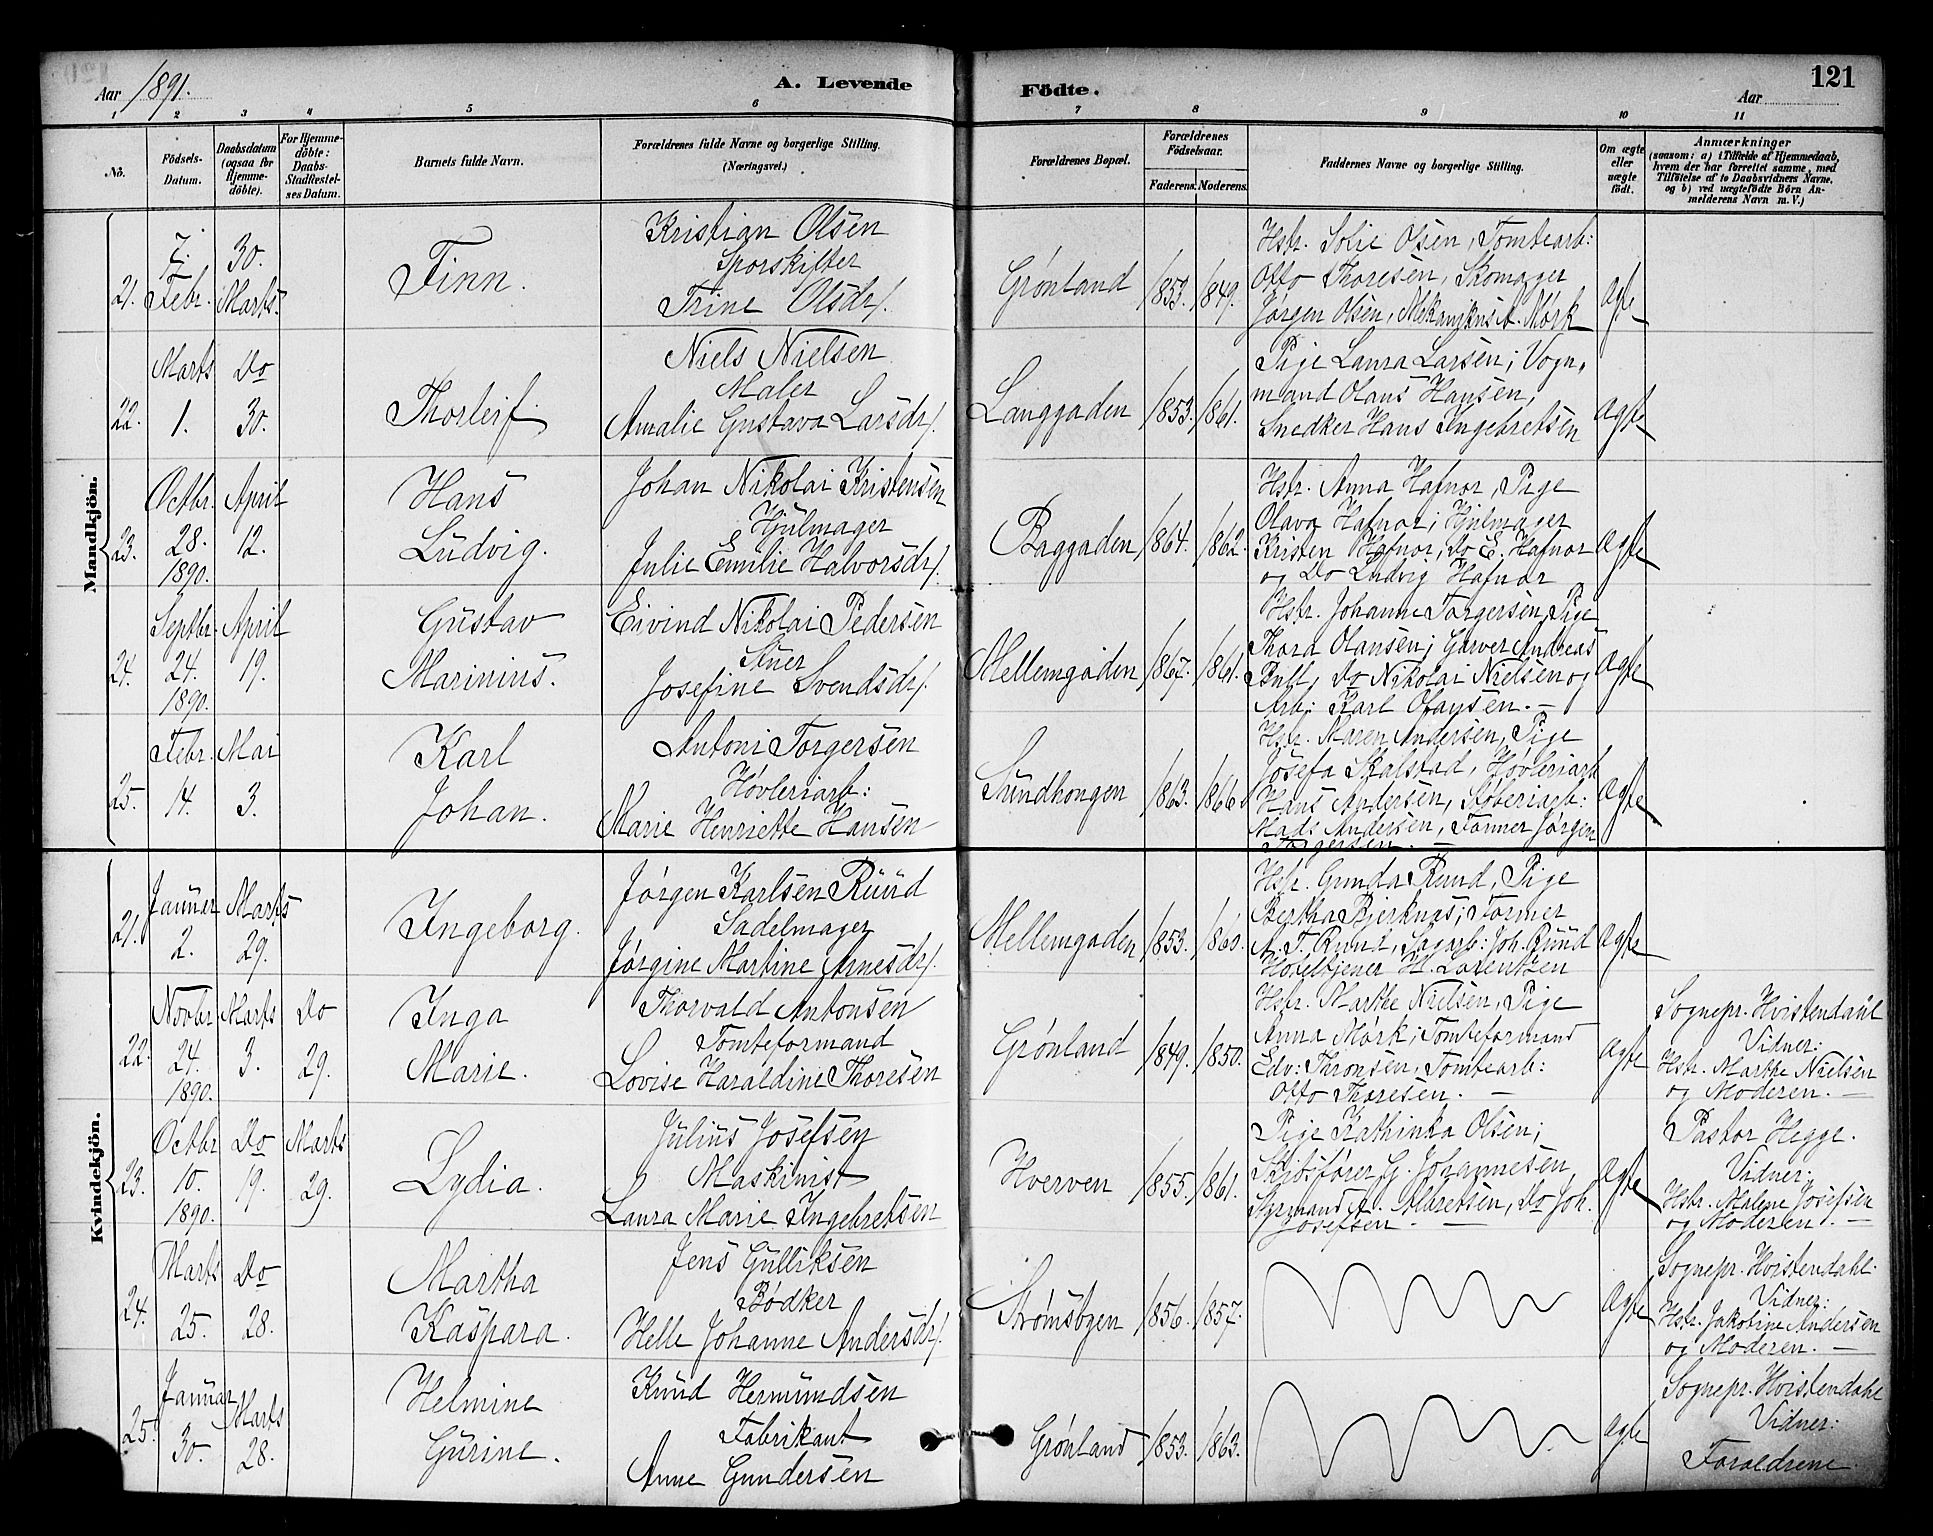 Aar 1891.
A. Levende Födte.
121
Aar
1 2 3 4 5 6 7 8 9 10 11
No.
Födsels-Datum.
Daabsdatum (ogsaa for Hjemme-döbte).
For Hjemme-döbte: Daabs-Stadfæstel-ses Datum.
Barnets fulde Navn.
Forældrenes fulde Navne og borgerlige Stilling. (Næringsvei.)
Forældrenes Bopæl.
Forældrenes Födselsaar.
Faderens. Moderens.
Faddernes Navne og borgerlige Stilling.
Om ægte eller uægte födt.
Anmærkninger
(saasom: a) i Tilfælde af Hjemmedaab, hvem der har forrettet samme, med Tilföielse af to Daabsvidners Navne, og b) ved uægtefödte Börn Anmelderens Navn m. V.)
Mandkjön.
21. 7. Febr. 30. Marts. Finn.
Kristian Olsen
Sporskifter
Trine Olsdr.
Grønland 1853. 1849.
Hstr. Solie Olsen, Tomtearb:
Otto Thoresen, Skomager
Jørgen Olsen, Mekanikus A. Mørk
Ægte
22. Marts 1. Do 30. Thorleif.
Niels Nielsen
Maler
Amalie Gustava Larsdr.
Langgaden 1853. 1861.
Pige Laura Larsen; Vogn-
mand Olaus Hansen,
Snedker Hans Ingebretsen
Ægte
23. Octbr. 28. 1890. April 12. Hans Ludvig.
Johan Nikolai Kristensen
Hjulmager
Julie Emilie Halvorsdr.
Baggaden 1864. 1862.
Hstr. Anna Hafnor, Pige
Olava Hafnor; Hjulmager
Kristen Hafnor, Do E. Hafnor
og Do Ludvig Hafnor
Ægte
24. Septbr. 24. 1890. April 19. Gustav Marinius.
Eivind Nikolai Pedersen
Josefine Svendsdr.
Mellemgaden 1867. 1861.
Hstr. Johanne Torgersen, Pige
Thora Olausen; Garver Andreas
Bull, Do Nikolai Nielsen og
Arb: Karl Olausen. —
Ægte
25. Febr. 14. Mai 3. Karl Johan.
Antoni Torgersen
Høvleriarb:
Marie Henriette Hansen
Sundhougen 1863. 1866.
Hstr. Maren Andersen, Pige
Josefa Skalstad, Høvleriarb
Hans Andersen, Støberiarb:
Mads Andersen, Former Jørgen
Torgersen. —
Ægte
Kvindekjön.
21. Januar 2. Marts 29. Ingeborg.
Jørgen Karlsen Ruud
Sadelmager
Jørgine Martine Arnesdr.
Mellemgaden 1853. 1860.
Hstr. Gunda Ruud, Pige
Bertha Bjerknæs; Former
A. T. Ruud, Sagarb: Joh. Ruud
Hoteltjener H. Lorentzen
Ægte
22. Novbr 24. 1890. Marts 3. Do 29. Inga Marie.
Thorvald Antonsen
Tomteformand
Lovise Haraldine Thoresen
Grønland 1849. 1850.
Hstr. Marthe Nielsen, Pige
Anna Mørk; Tomteformand
Edv: Thronsen, Tomtearb:
Otto Thoresen. —
Ægte
Sognepr. Hvistendahl
Vidner:
Hstr. Marthe Nielsen
og Moderen. —
23. Octbr 10. 1890. Do 19. Marts 29. Lydia.
Julius Josefsen
Maskinist
Laura Marie Ingebretsen
Hverven 1855. 1861.
Pige Kathinka Olsen;
Skibsfører G. Johannesen,
Styrmand A. Albretsen, Do Joh.
Josefsen. —
Ægte
Pastor Hegge.
Vidner:
Hstr. Malene Josefsen
og Moderen. —
24. Marts 25. Do 28. Martha Kaspara.
Jens Gulliksen
Bødker
Helle Johanne Andersdr.
Strømsbgen 1856. 1857.
Ægte
Sognepr. Hvistendahl.
Vidner:
Hstr. Jakobine Andersen
og Moderen. —
25. Januar 30. Marts 28. Helmine Gurine.
Knud Hermundsen
Fabrikant
Anne Gundersen
Grønland 1853. 1863.
Ægte
Sognepr. Hvistendahl
Vidner:
Forældrene